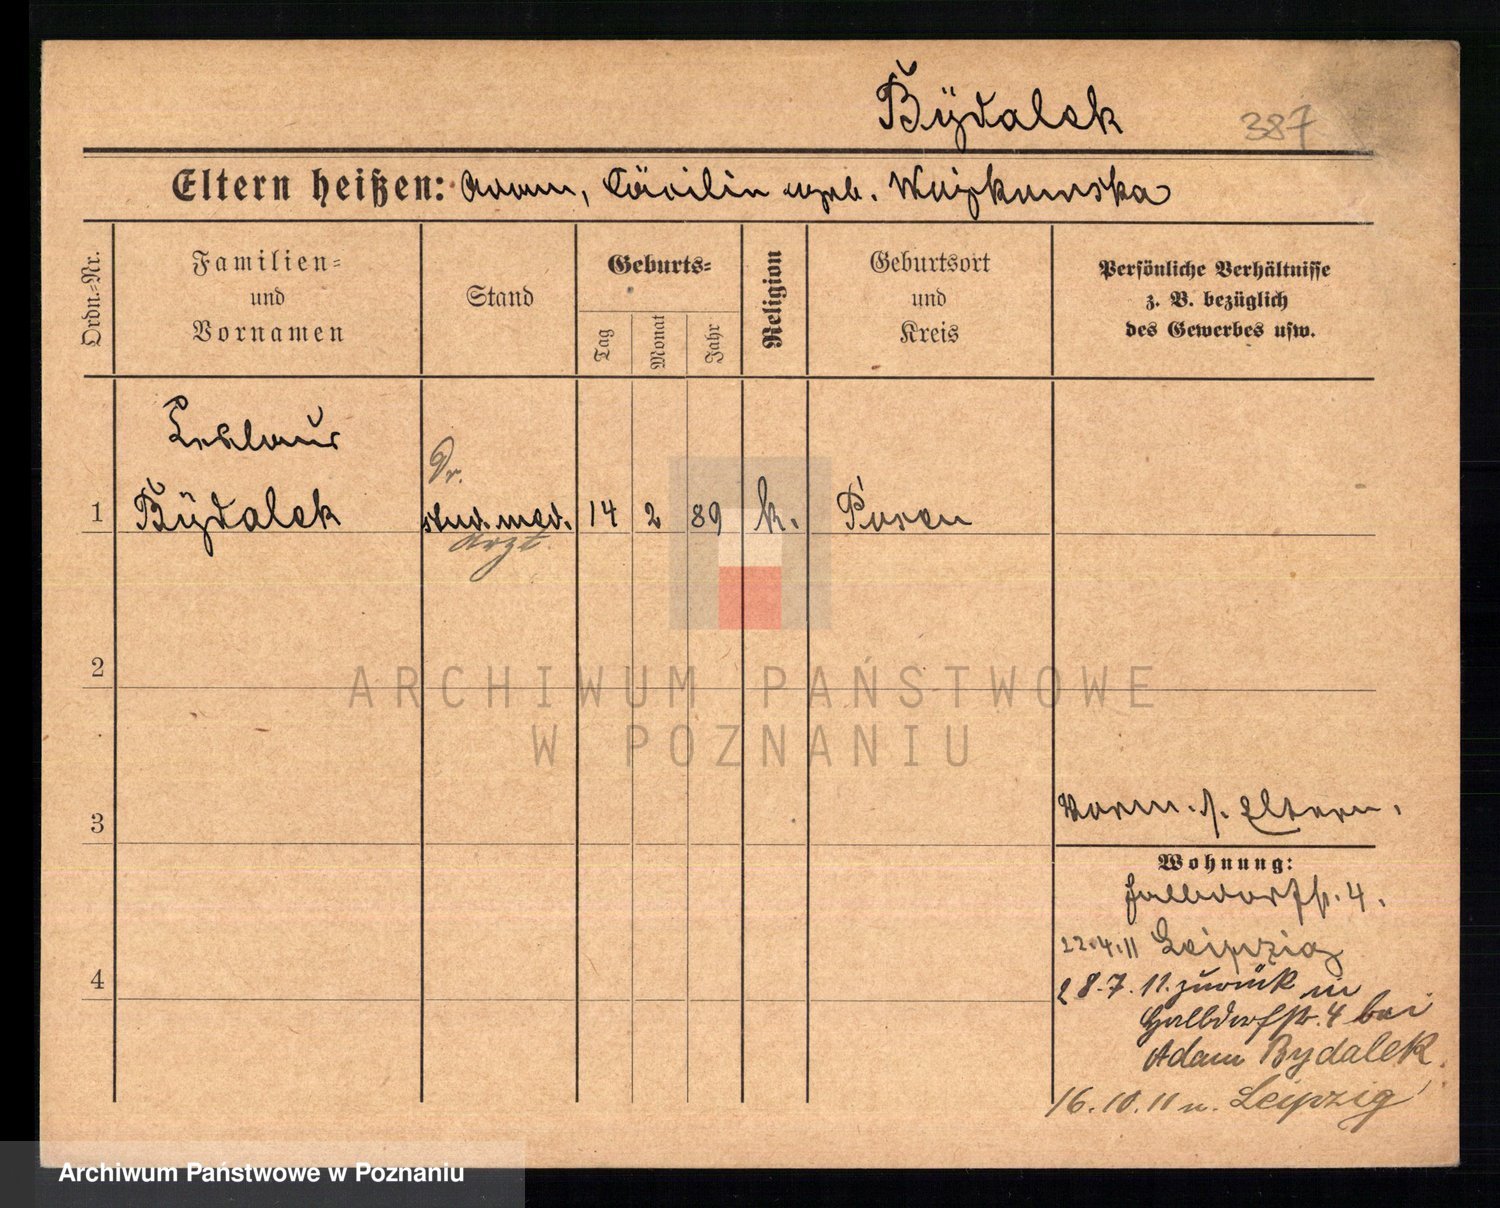 Bÿdalek
387
Eltern heißen: Adam, Cäcilie geb. Woizkowska
Ordn.-Nr.
Familien-
und
Vornamen
Stand
Geburts-
Tag
Monat
Jahr
Religion
Geburtsort
und
Kreis
Persönliche Verhältnisse
z. B. bezüglich
des Gewerbes usw.
Leslaus
Dr.
1 Bÿdalek stud. med. 14 2 89 k. Posen
Arzt
2
ARCHIWUM PAŃSTWOWE
W POZNANIU
3
Vorm. s. Eltern.
Wohnung:
Halbdorfstr. 4.
22.4.11 Leipzig
4
28.7.11. zurück in
Halbdorfstr. 4 bei
Adam Bydalek.
16.10.11 n. Leipzig
Archiwum Państwowe w Poznaniu